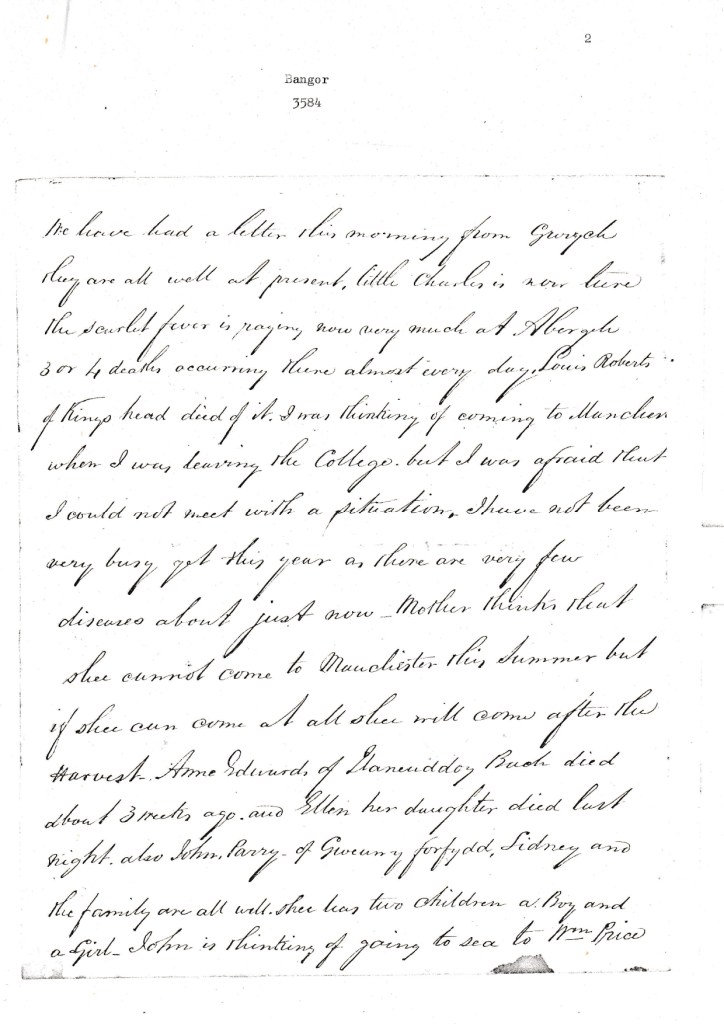 2
Bangor
3584
We have had a letter this morning from Gwrych
they are all well at present, little Charles is now here
the scarlet fever is raging now very much at Abergele
3 or 4 deaths occurring there almost every day, Louis Roberts
of Kings head died of it. I was thinking of coming to Manchester
when I was leaving the College. but I was afraid that
I could not meet with a situation, I have not been
very busy yet this year as there are very few
diseases about just now - Mother thinks that
shee cannot come to Manchester this Summer but
if shee can come at all shee will come after the
Harvest - Anne Edwards of Bach died
about 3 weeks ago. and Ellen her daughter died last
night. also John Parry - of forfydd, Sidney and
the family are all well. shee has two children a Boy and
a Girl - John is thinking of going to sea to Wm Price